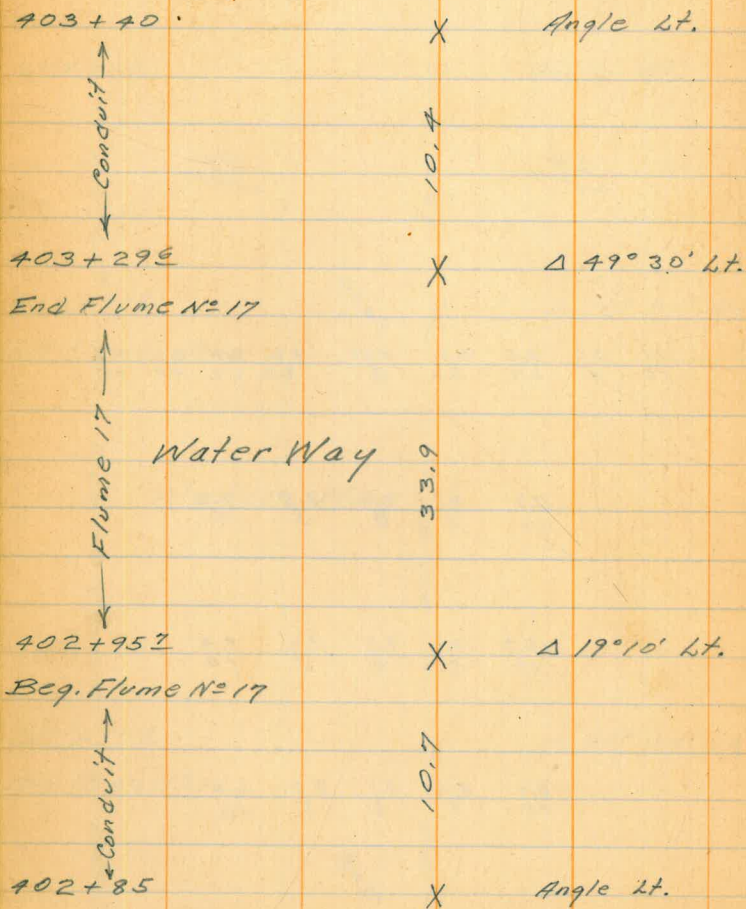 403 + 40 Angle Lt.
← Conduit →
10.4
403 + 29 6 Δ 49° 30' Lt.
End Flume Nº 17
← Flume 17 →
Water Way
33.9
402 + 95 7 Δ 19° 10' Lt.
Beg. Flume Nº 17
← Conduit →
10.7
402 + 85 Angle Lt.